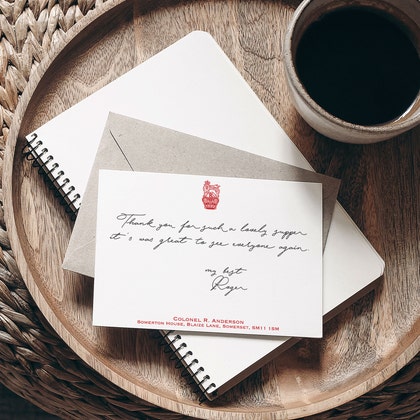 Thank you for such a lovely supper
it's was great to see everyone again.
my best
Roger
COLONEL R. ANDERSON
SOMERTON HOUSE, BLAIZE LANE, SOMERSET, SM11 1SM